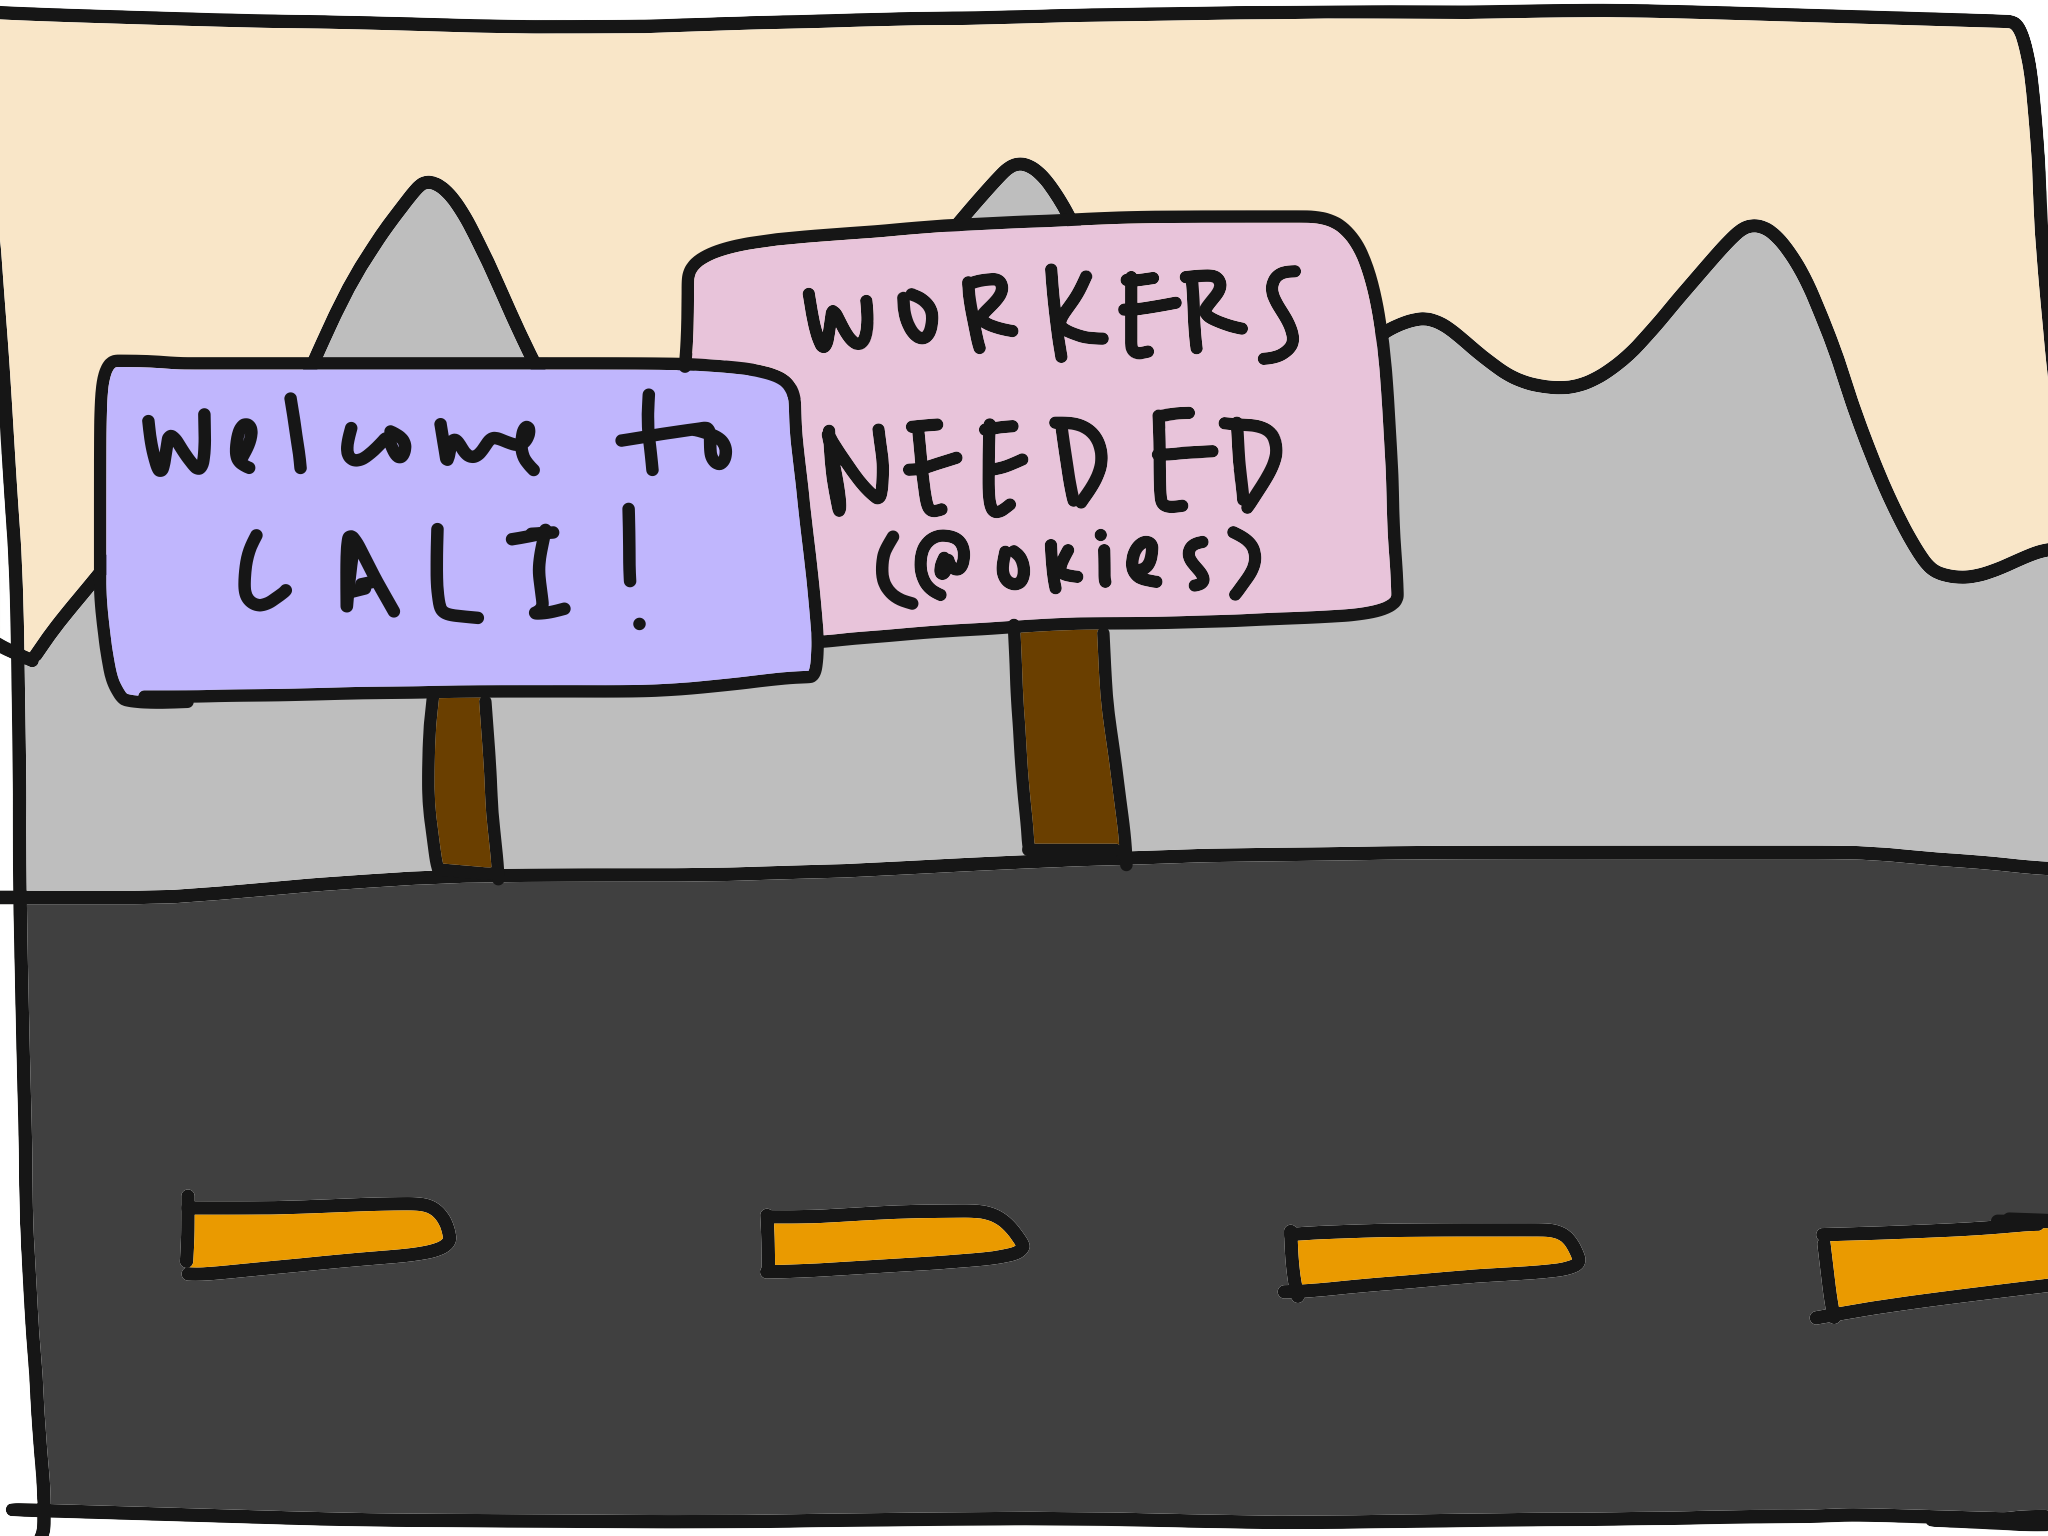 Welcome to
CALI!
WORKERS
NEEDED
(@okies)